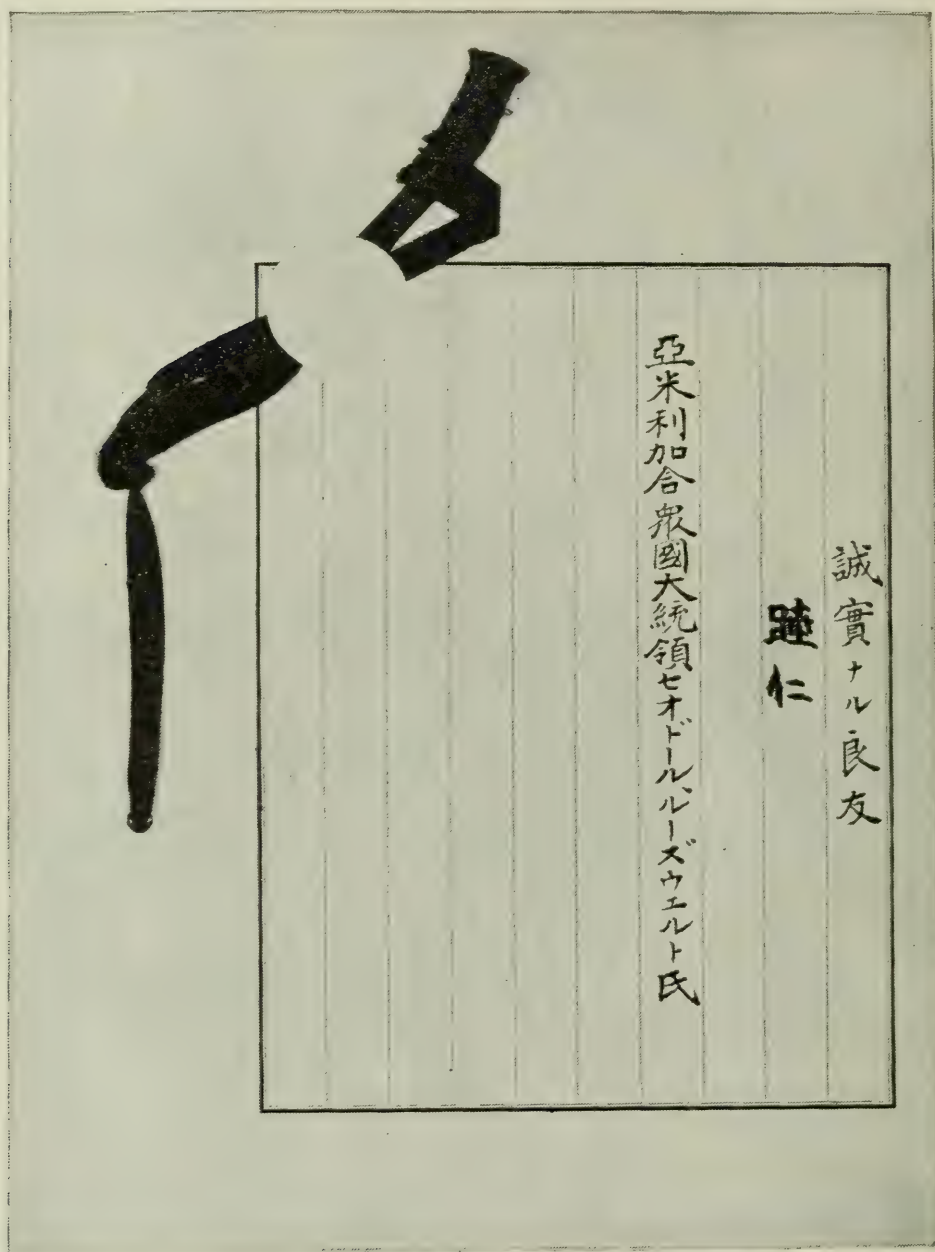 誠實ナル良友
睦仁
亞米利加合衆國大統領セオドール、ルーズウエルト氏